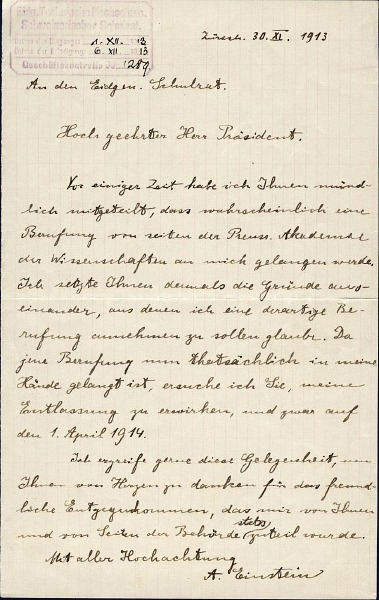 Eidg. Technische Hochschule
Schweizerischer Schulrat
1. XII. 13
6. XII 13
1289
Zürich. 30. XI. 1913
An den Eidgen. Schulrat.
Hoch geehrter Herr Präsident.
Vor einiger Zeit habe ich Ihnen münd-
lich mitgeteilt, dass wahrscheinlich eine
Berufung von seiten der Preuss. Akademie
der Wissenschaften an mich gelangen werde.
Ich setzte Ihnen damals die Gründe aus-
einander, aus denen ich eine derartige Be-
rufung annehmen zu sollen glaube. Da
jene Berufung nun thatsächlich in meine
Hände gelangt ist, ersuche ich Sie, meine
Entlassung zu erwirken, und zwar auf
den 1. April 1914.
Ich ergreife gerne diese Gelegenheit, um
Ihnen von Herzen zu danken für das freund-
liche Entgegenkommen, das mir von Ihnen
und von Seiten der Behörde stets zuteil wurde.
Mit aller Hochachtung
A. Einstein